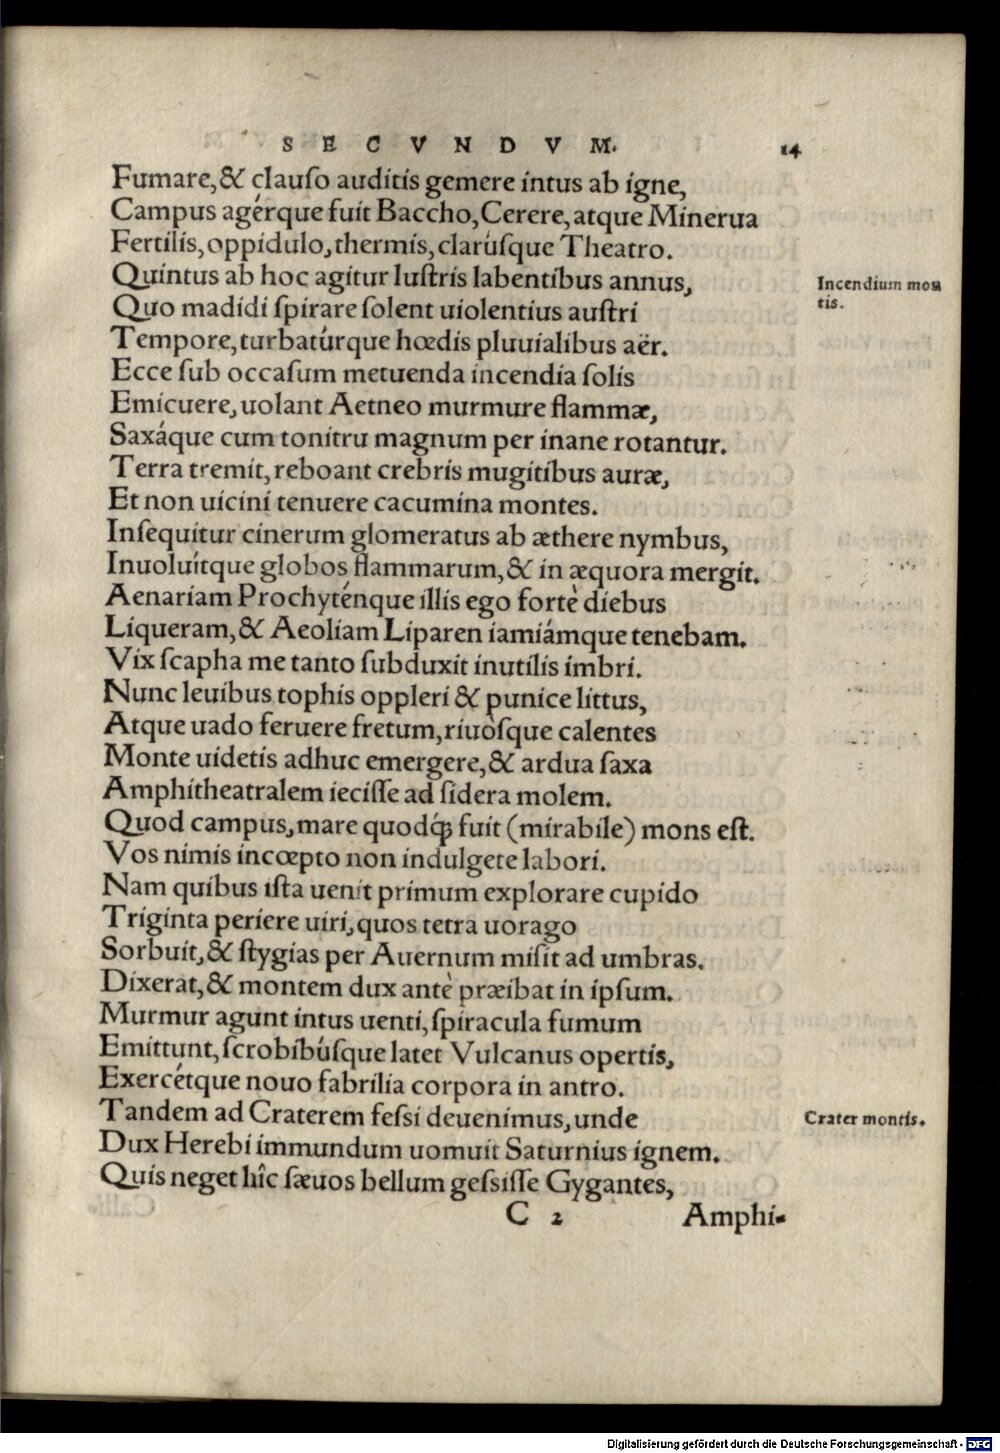 SECVNDVM. 14
Fumare, & clauſo auditis gemere intus ab igne,
Campus agérque fuit Baccho, Cerere, atque Minerua
Fertilis, oppidulo, thermis, clarúſque Theatro.
Quintus ab hoc agitur luſtris labentibus annus,
Incendium mon
tis.
Quo madidi ſpirare ſolent uiolentius auſtri
Tempore, turbatúrque hœdis pluuialibus aër.
Ecce ſub occaſum metuenda incendia ſolis
Emicuere, uolant Aetneo murmure flammæ,
Saxáque cum tonitru magnum per inane rotantur.
Terra tremit, reboant crebris mugitibus auræ,
Et non uicini tenuere cacumina montes.
Inſequitur cinerum glomeratus ab æthere nymbus,
Inuoluítque globos flammarum, & in æquora mergit.
Aenariam Prochyténque illis ego fortè diebus
Liqueram, & Aeoliam Liparen iamiámque tenebam.
Vix ſcapha me tanto ſubduxit inutilis imbri.
Nunc leuibus tophis oppleri & punice littus,
Atque uado feruere fretum, riuòſque calentes
Monte uidetis adhuc emergere, & ardua ſaxa
Amphitheatralem ieciſſe ad ſidera molem.
Quod campus, mare quodq́ꝫ fuit (mirabile) mons eſt.
Vos nimis incœpto non indulgete labori.
Nam quibus iſta uenit primum explorare cupido
Triginta periere uiri, quos tetra uorago
Sorbuit, & ſtygias per Auernum miſit ad umbras.
Dixerat, & montem dux antè præibat in ipſum.
Murmur agunt intus uenti, ſpiracula fumum
Emittunt, ſcrobibúſque latet Vulcanus opertis,
Exercétque nouo fabrilia corpora in antro.
Tandem ad Craterem feſſi deuenimus, unde
Crater montis.
Dux Herebi immundum uomuit Saturnius ignem.
Quis neget hîc ſæuos bellum geſsiſſe Gygantes,
C 2 Amphi-
Digitalisierung gefördert durch die Deutsche Forschungsgemeinschaft - DFG